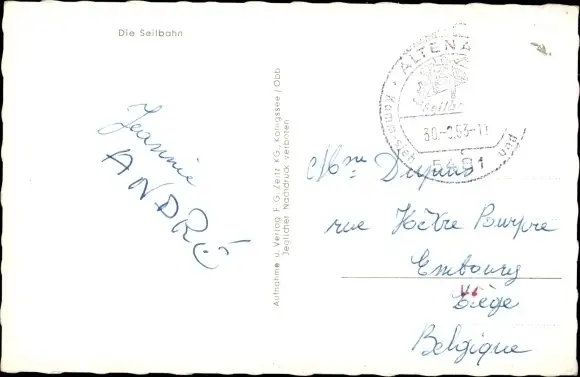 Die Seilbahn
Jeannie
ANDRÉ
Aufnahme u. Verlag F. G. Zeitz KG., Königssee/Obb
Jeglicher Nachdruck verboten
ALTENA
30.-9.63-11
5481
Mme Dupuis
rue Hêtre Pourpre
Embourg
Liège
Belgique